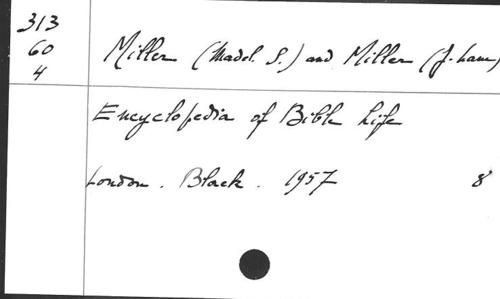 313
60
4
Miller (Madel. S.) and Miller (J. Lane)
Encyclopedia of Bible Life
London. Black. 1957 8